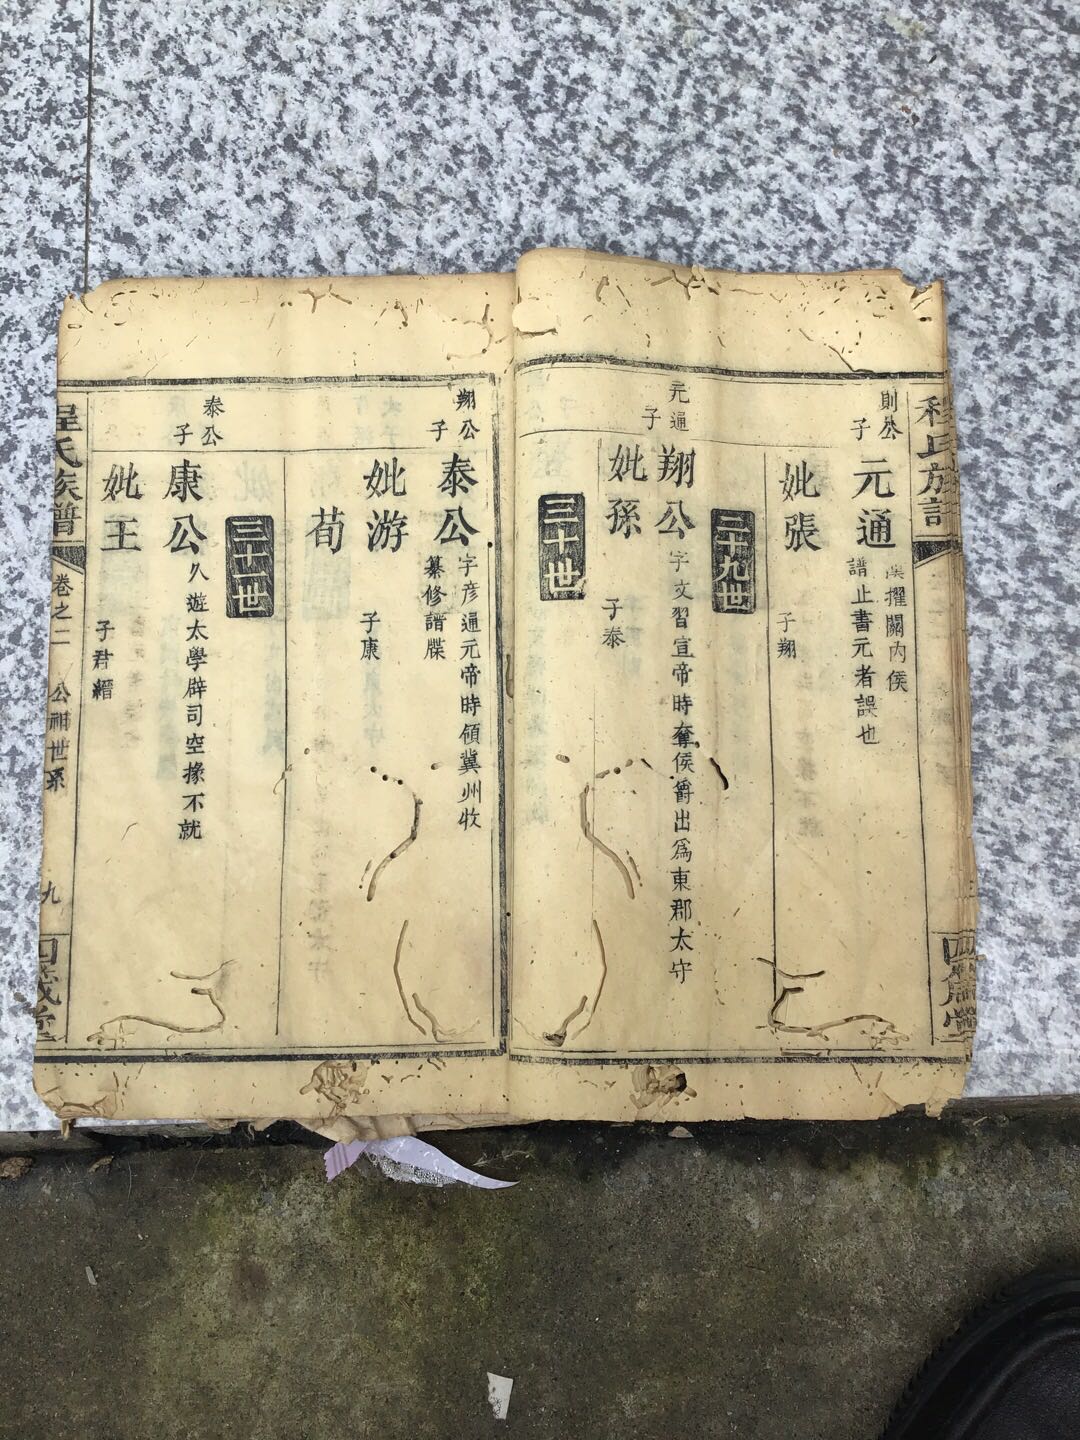 則公
子
元通
漢擢關內侯
譜止書元者誤也
妣張
子翔
二十九世
元通
子
翔公
字文習宣帝時奪侯爵出為東郡太守
妣孫
子泰
三十世
翔公
子
泰公
字彥通元帝時領冀州牧
纂修譜牒
妣游
荀
子康
三十一世
泰公
子
康公
久遊太學辟司空掾不就
妣王
子君縉
程氏族譜
卷之二
公祖世系
九